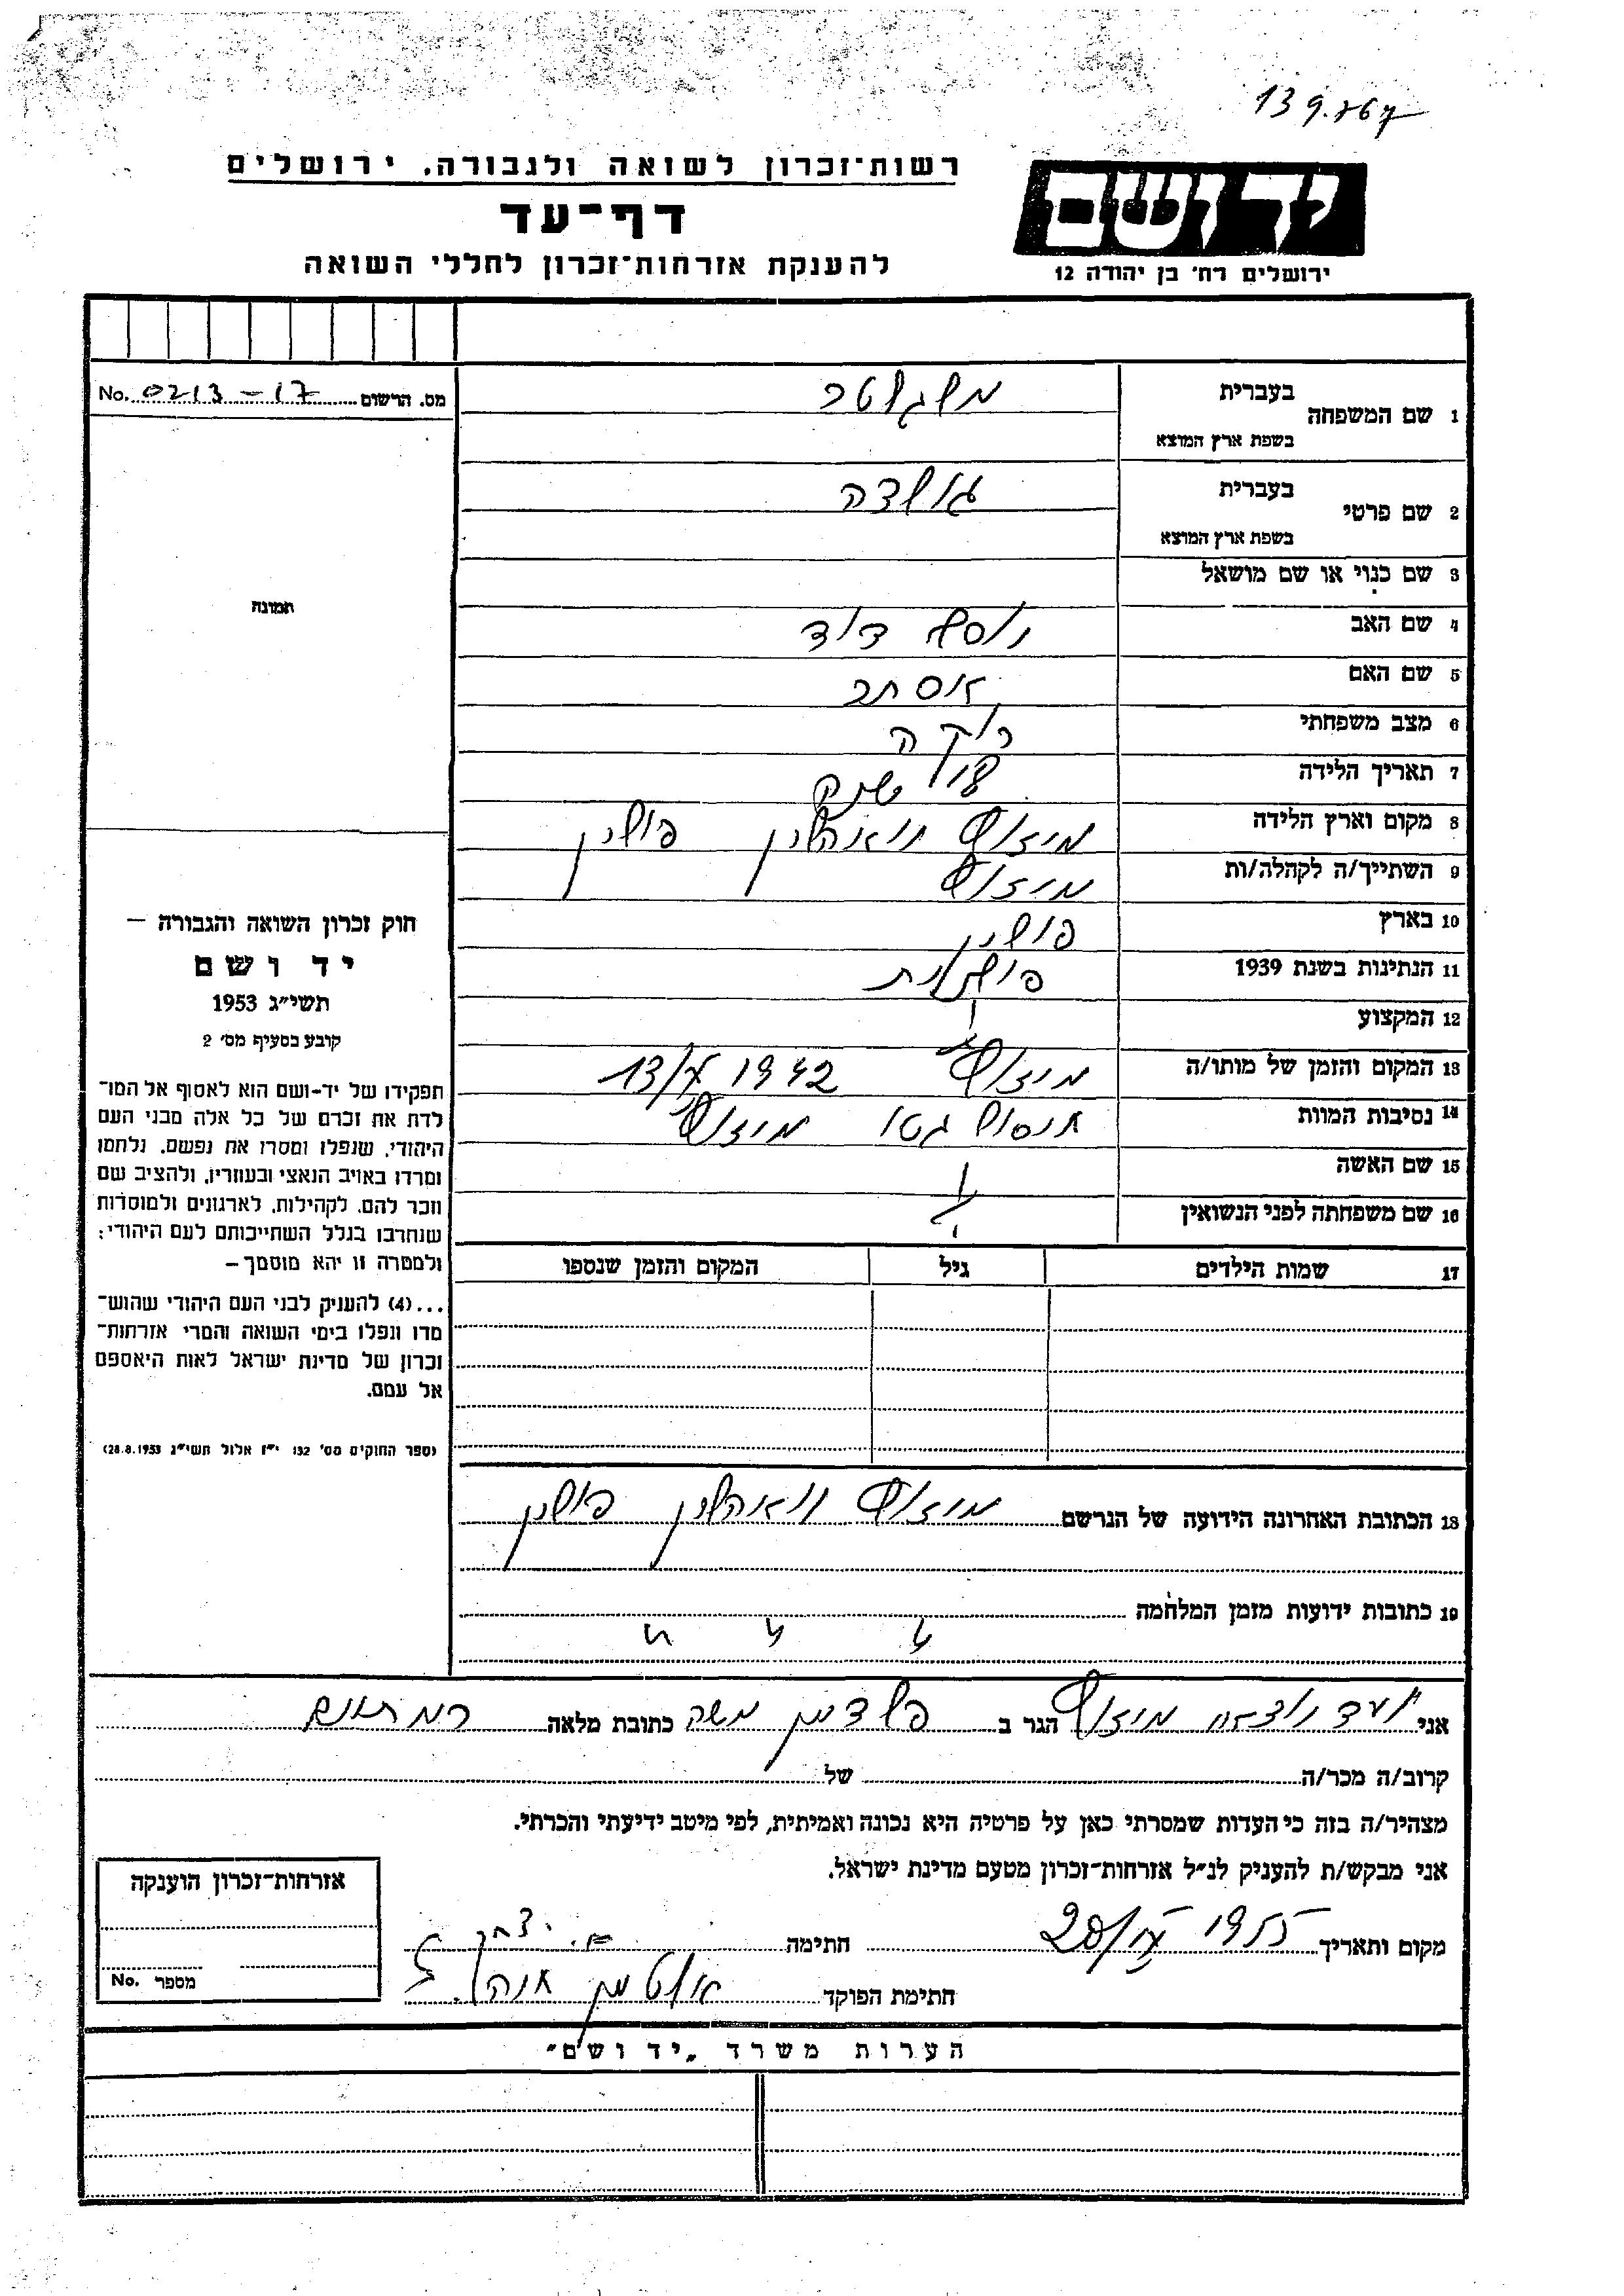 139.767
רשות־זכרון לשואה ולגבורה. ירושלים
יד ושם
דף־עד
ירושלים רח׳ בן יהודה 12
להענקת אזרחות־זכרון לחללי השואה
מס. הרשום 0213-17 No.
בעברית
1 שם המשפחה
בשפת ארץ המוצא
בעברית גולדה
2 שם פרטי
בשפת ארץ המוצא
3 שם כנוי או שם מושאל
תמונה
4 שם האב יוסף דוד
5 שם האם אסתר
6 מצב משפחתי רוקה
7 תאריך הלידה
8 מקום וארץ הלידה מיזוץ וואהלין פולין
9 השתייך/ה לקהלה/ות מיזוץ
10 בארץ פולין
11 הנתינות בשנת 1939 פולנית
12 המקצוע
13 המקום והזמן של מותו/ה מיזוץ 1942 13/X
14 נסיבות המוות חיסול גטו מיזוץ
15 שם האשה
16 שם משפחתה לפני הנשואין
חוק זכרון השואה והגבורה –
יד ושם
תשי״ג 1953
קובע בסעיף מס׳ 2
תפקידו של יד-ושם הוא לאסוף אל המו־
לדת את זכרם של כל אלה מבני העם
היהודי, שנפלו ומסרו את נפשם, נלחמו
ומרדו באויב הנאצי ובעוזריו, ולהציב שם
וזכר להם, לקהילות, לארגונים ולמוסדות
שנחרבו בגלל השתייכותם לעם היהודי;
ולמטרה זו יהא מוסמך –
...(4) להעניק לבני העם היהודי שהוש־
מדו ונפלו בימי השואה והמרי אזרחות־
זכרון של מדינת ישראל לאות היאספם
אל עמם.
(ספר החוקים מס׳ 132 י״ז אלול תשי״ג 28.8.1953)
17 שמות הילדים גיל המקום והזמן שנספו
18 הכתובת האחרונה הידועה של הנרשם מיזוץ וואהלין פולין
19 כתובות ידועות מזמן המלחמה
אני ועד יוצאי מיזוץ הגר ב פלדמן משה כתובת מלאה
קרוב/ה מכר/ה של
מצהיר/ה בזה כי העדות שמסרתי כאן על פרטיה היא נכונה ואמיתית, לפי מיטב ידיעתי והכרתי.
אני מבקש/ת להעניק לנ״ל אזרחות-זכרון מטעם מדינת ישראל.
מקום ותאריך 1955 חתימה
חתימת הפוקד
אזרחות-זכרון הוענקה
מספר No.
הערות משרד „יד ושם״